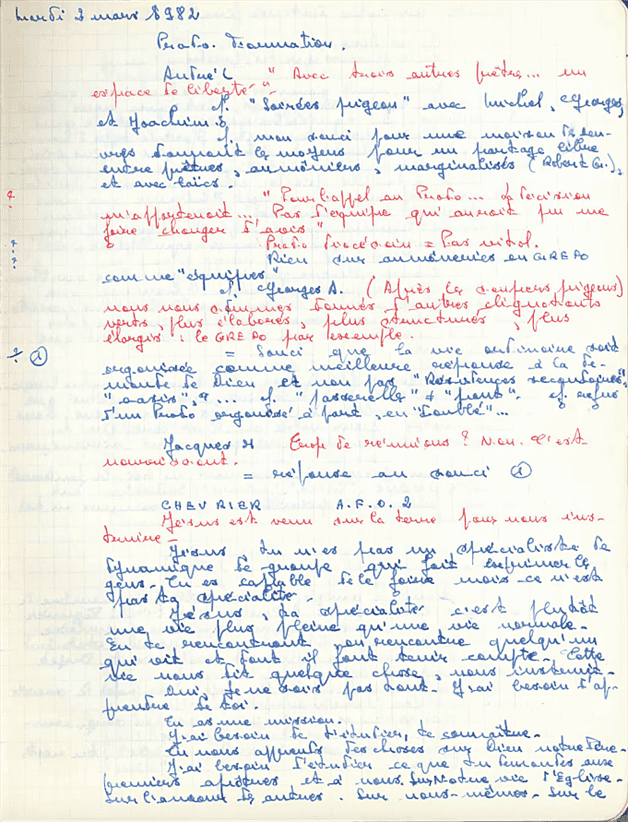 mardi 2 mars 1982
Prado. Formation.
André L " Avec trois autres prêtres... un
espace de liberté".
cf. "Soirées pigeon" avec Michel, Georges,
et Joachim.
cf mon souci pour une maison
donnant les moyens pour un partage libre
entre prêtres, aumôniers, marginalisés (Robert Gr.),
et avec laïcs.
? " Pour l'appel au Prado... la décision
m'appartenait... Pas d'équipe qui aurait pu me
faire changer d'avis"
? Prado diocésain = Pas vital.
? Rien sur aumôneries en GREPO
? comme "équipes"
cf Georges A. (Après les soupers pigeons)
nous nous sommes donnés d'autres clignotants
verts, plus élaborés, plus structurés, plus
élargis : le GREPO par exemple.
? 1 = Souci que la vie ordinaire soit
organisée comme meilleure réponse à la de-
mande de Dieu et non pas "Résidences secondaires"
"oasis", ? ... cf. "passerelle" & "pont". cf refus
d'un Prado organisé à part, en "doublé"...
Jacques M Trop de réunions ? Non. C'est
nourrissant.
= réponse au souci 1
CHEVRIER A.F.O. 2
Jésus est venu sur la terre pour nous ins-
truire -
Jésus, tu n'es pas un spécialiste de
dynamique de groupe qui fait exprimer les
gens. Tu es capable de le faire mais ce n'est
pas ta spécialité.
Jésus, ta spécialité c'est plutôt
une vie plus pleine qu'une vie normale.
En te rencontrant, on rencontre quelqu'un
qui vit et dont il faut tenir compte. Cette
vie nous dit quelque chose, nous instruit.
Oui, je ne sais pas tout. J'ai besoin d'ap-
prendre de toi.
Tu as une mission.
J'ai besoin de t'étudier, te connaître.
Tu nous apprends des choses sur Dieu notre Père.
J'ai besoin d'étudier ce que tu demandes aux
premiers apôtres et à nous. Sur notre vie d'Eglise.
Sur l'amour des autres. Sur nous-mêmes. Sur le